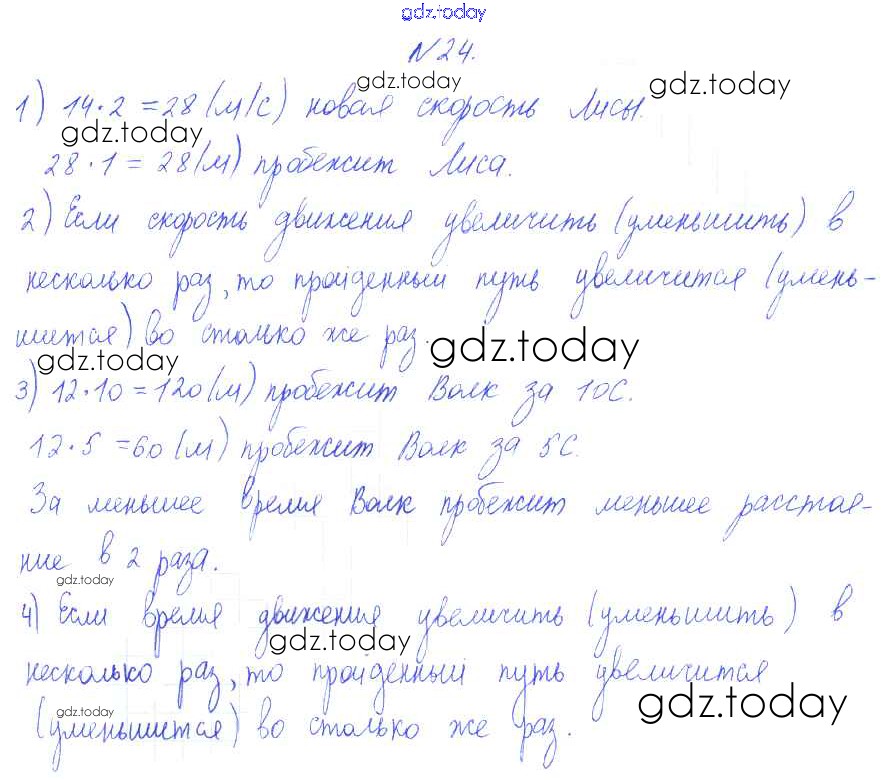 gdz.today
N24.
gdz.today gdz.today
1) 14·2 = 28 (м/с) новая скорость Лисы.
gdz.today
28·1 = 28 (м) пробежит Лиса.
2) Если скорость движения увеличить (уменьшить) в
несколько раз, то пройденный путь увеличится (умень-
шится) во столько же раз.
gdz.today gdz.today
3) 12·10 = 120 (м) пробежит Волк за 10с.
12·5 = 60 (м) пробежит Волк за 5с.
За меньшее время Волк пробежит меньшее расстоя-
ние в 2 раза.
gdz.today
4) Если время движения увеличить (уменьшить) в
gdz.today
несколько раз, то пройденный путь увеличится
gdz.today gdz.today
(уменьшится) во столько же раз.